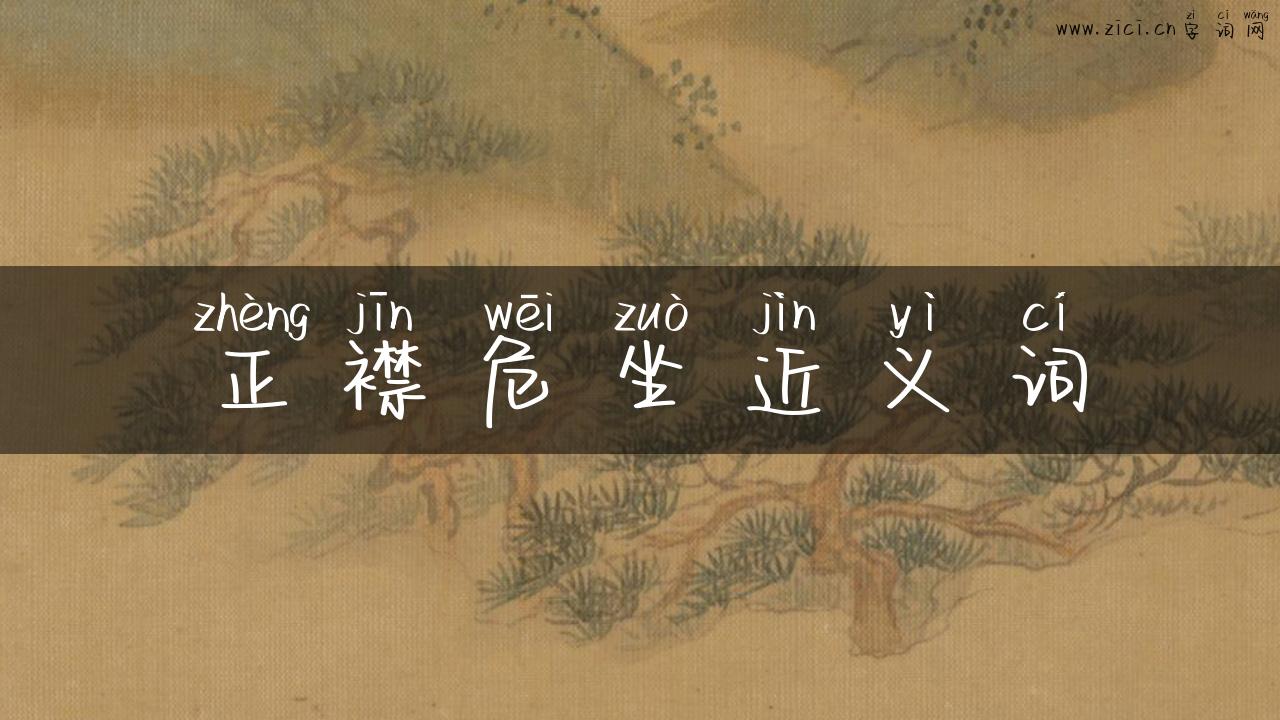 zì cí wǎng
www.zici.cn 字词网
zhèng jīn wēi zuò jìn yì cí
正襟危坐近义词